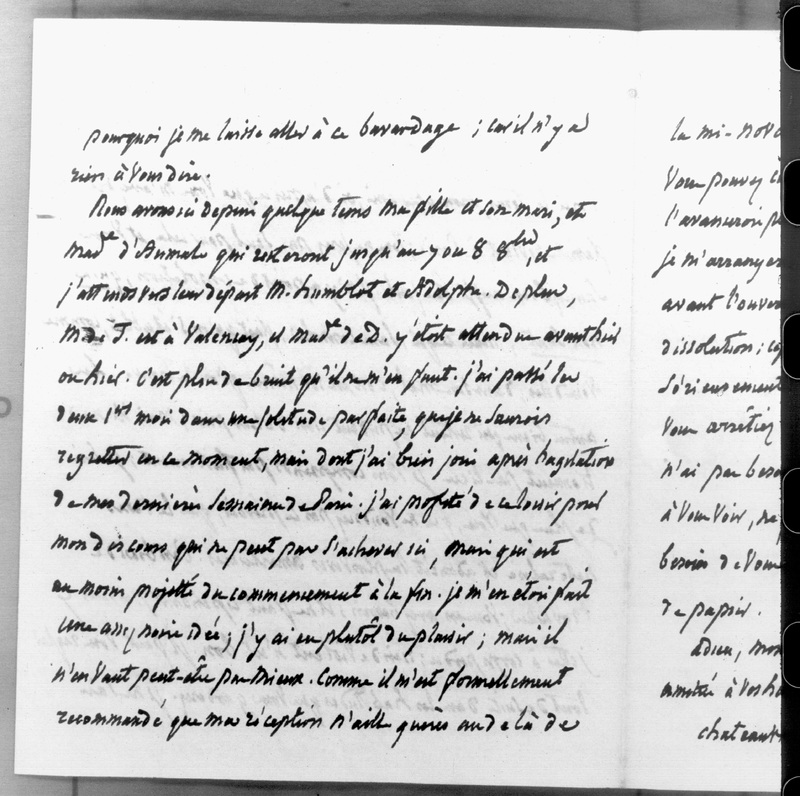 pourquoi je me laisse aller à ce bavardage ; car il n'y a
rien à vous dire.
Nous avons ici depuis quelque tems ma fille et son mari, et
Made d'Aumale qui resteront jusqu'au 7 ou 8 8bre, et
j'attends vers leur départ M. humblot et Adolphe. De plus,
Mde de T. est à Valençay, et Made de D. y étoit attendue avant hier
ou hier. C'est plus de bruit qu'il ne m'en faut. j'ai passé les
deux 1ers mois dans une solitude parfaite, que je ne saurois
regretter en ce moment, mais dont j'ai bien joui après l'agitation
de mes dernières semaines de Paris. j'ai profité de ce loisir pour
mon discours qui ne peut pas s'achever ici, mais qui est
au moins projetté du commencement à la fin. je m'en étois fait
une assez noire idée ; j'y ai eu plutôt du plaisir ; mais il
n'en vaut peut-être pas mieux. Comme il m'est formellement
recommandé que ma réception n'aille guères au delà de
la mi-nov
Vous pouvez
l'avancerois
je m'arranger
avant l'ouver
dissolution ;
sérieusement
vous arrêtiez
n'ai pas beso
à vous voir,
besoin de vous
de papier.
adieu, mon
amitié à vos
chateau